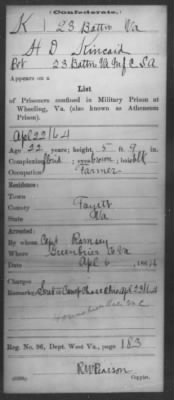 (Confederate.)
K 23 Battn Va
H D Kincaid
Pvt 23 Battn Va Inf C.S.A
Appears on a
List
of Prisoners confined in Military Prison at
Wheeling, Va. (also known as Atheneum
Prison).
Apl 22 / 64
Age 22 years; height 5 ft. 9 in.
Complexion flord; eyes brown; hair blk
Occupation Farmer
Residence:
Town
County Fayett
State Va
Arrested:
By whom Capt Ramsey
Where Greenbrier Co Va
Date Apl 6, 1864
Charges
Remarks: Sent to Camp Chase Ohio Apl 22/64
Reg. No. 96, Dept. West Va., page 183
RW Pearson
Copyist.